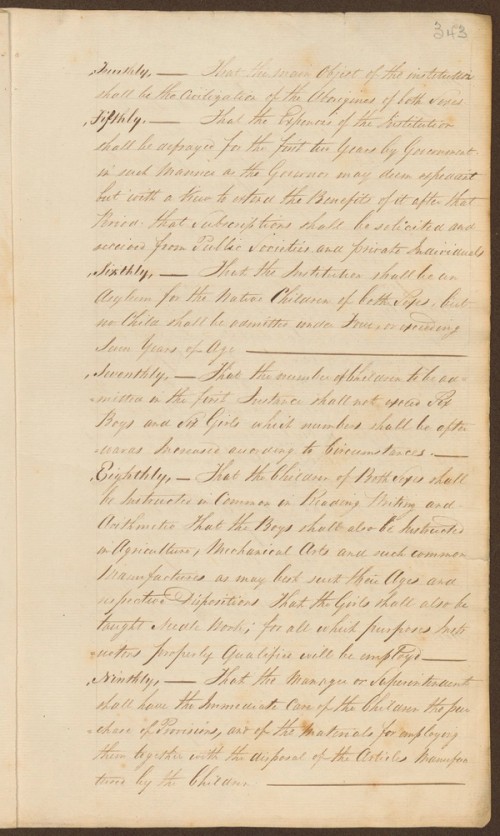 343
Fourthly, — That the main Object of the institution
shall be the Civilization of the Aborigines of both Sexes
Fifthly, — That the Expences of the Institution
shall be defrayed for the first two Years by Government
in such Manner as the Governor may deem expedient
but with a View to extend the Benefits of it after that
Period that Subscriptions shall be solicited and
received from Public Societies and private Individuals
Sixthly, — That the Institution shall be an
Asylum for the Native Children of both Sexes, but
no Child shall be admitted under Four, or exceeding
Seven Years of Age —
Seventhly, — That the number of Children to be ad-
mitted in the first Instance shall not exceed Six
Boys and Six Girls which numbers shall be after
wards Increased according to Circumstances. —
Eighthly, — That the Children of Both Sexes shall
be Instructed in Common in Reading Writing and
Arithmetic That the Boys shall also be Instructed
in Agriculture, Mechanical Arts and such common
Manufactures as may best suit their Ages and
respective Dispositions That the Girls shall also be
taught Needle Work; for all which purposes Inst-
ructors properly Qualified will be employd —
Ninthly, — That the Manager or Superintendent
shall have the Immediate Care of the Children the pur
chase of Provisions, and of the Materials for employing
them together with the disposal of the Articles Manufac
tured by the Children —